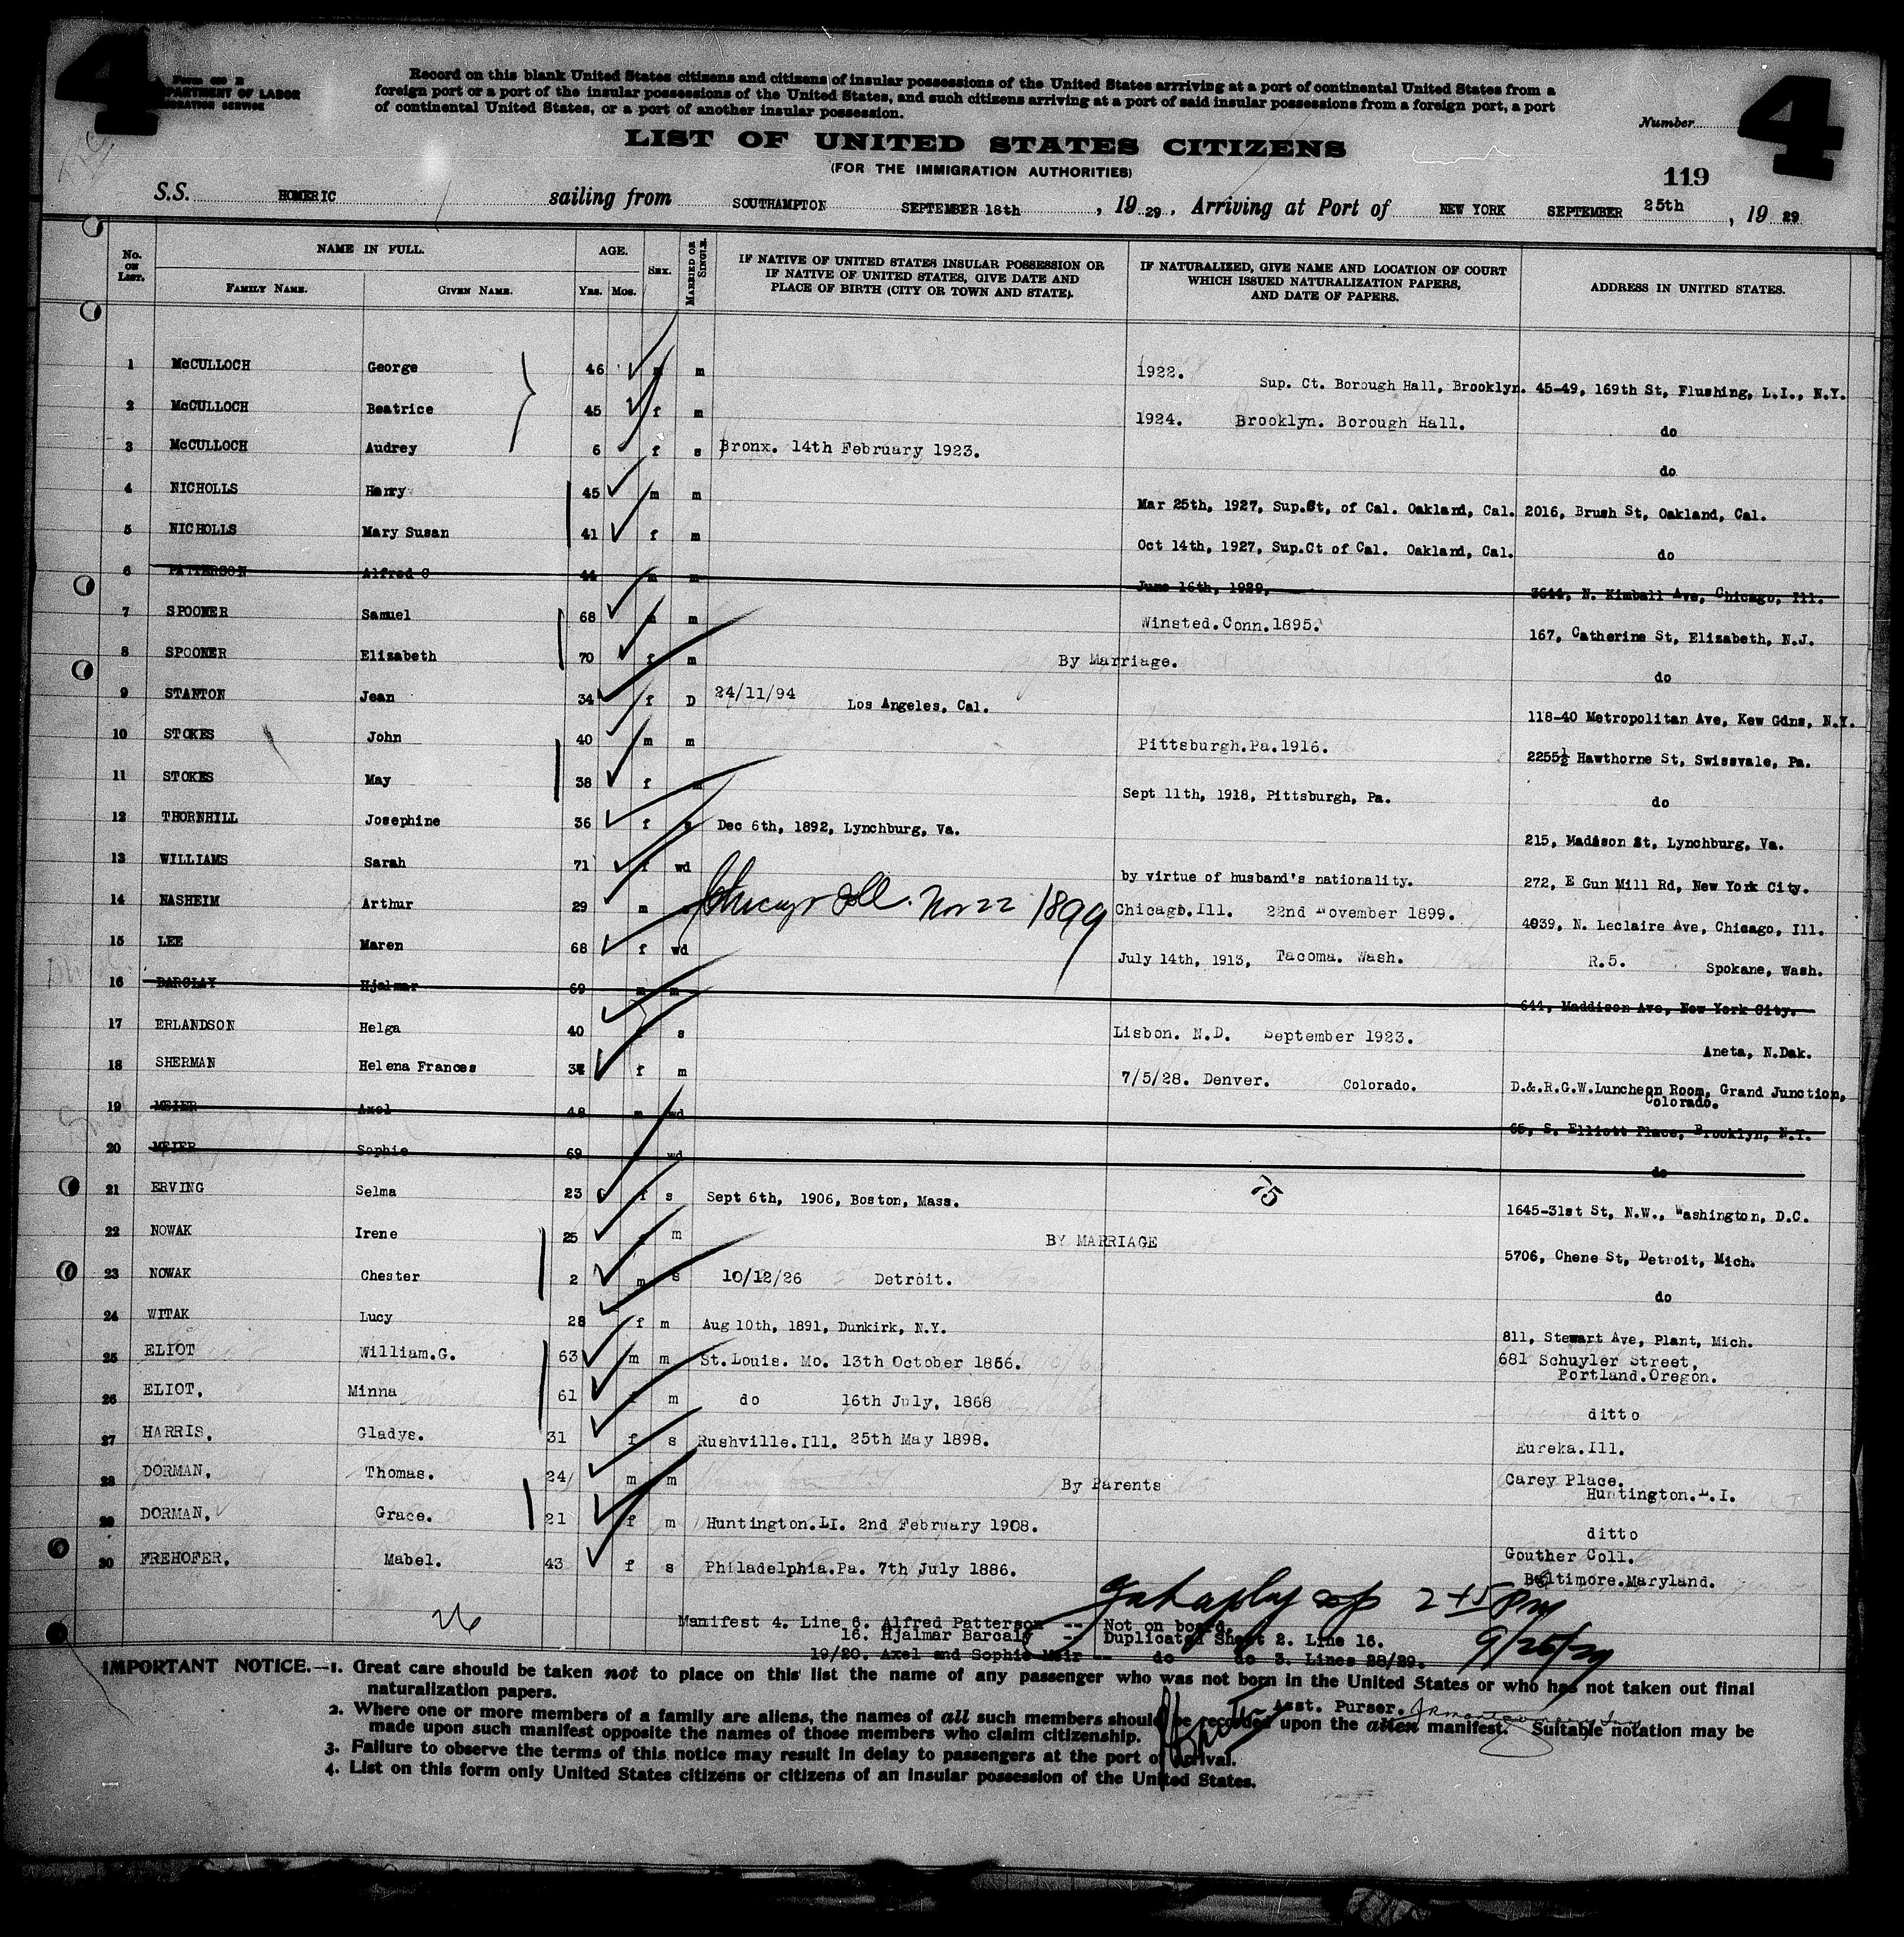 4
4
Form 630 B
DEPARTMENT OF LABOR
IMMIGRATION SERVICE
Record on this blank United States citizens and citizens of insular possessions of the United States arrriving at a port of continental United States from a
foreign port or a port of the insular possessions of the United States, and such citizens arriving at a port of said insular possessions from a foreign port, a port
of continental United States, or a port of another insular possession.
Number
LIST OF UNITED STATES CITIZENS
(FOR THE IMMIGRATION AUTHORITIES)
119
S.S. HOMERIC sailing from SOUTHAMPTON SEPTEMBER 18th, 19 29. Arriving at Port of NEW YORK SEPTEMBER 25th, 19 29
No. ON LIST. NAME IN FULL. FAMILY NAME. GIVEN NAME. AGE. Yrs. Mos. SEX. MARRIED OR SINGLE. IF NATIVE OF UNITED STATES INSULAR POSSESSION OR IF NATIVE OF UNITED STATES, GIVE DATE AND PLACE OF BIRTH (CITY OR TOWN AND STATE). IF NATURALIZED, GIVE NAME AND LOCATION OF COURT WHICH ISSUED NATURALIZATION PAPERS, AND DATE OF PAPERS. ADDRESS IN UNITED STATES.
1 McCULLOCH George 46 m m 1922. Sup. Ct. Borough Hall, Brooklyn. 45-49, 169th St, Flushing, L.I., N.Y.
2 McCULLOCH Beatrice 45 f m 1924. Brooklyn. Borough Hall. do
3 McCULLOCH Audrey 6 f s Bronx. 14th February 1923. do
4 NICHOLLS Harry 45 m m Mar 25th, 1927, Sup.Ct, of Cal. Oakland, Cal. 2016, Brush St, Oakland, Cal.
5 NICHOLLS Mary Susan 41 f m Oct 14th, 1927, Sup.Ct of Cal. Oakland, Cal. do
6 PATTERSON Alfred C 44 m m June 16th, 1929, 3644, N. Kimball Ave, Chicago, Ill.
7 SPOONER Samuel 68 m m Winsted.Conn.1895. 167, Catherine St, Elizabeth, N.J.
8 SPOONER Elizabeth 70 f m By Marriage. do
9 STANTON Jean 34 f D 24/11/94 Los Angeles, Cal. 118-40 Metropolitan Ave, Kew Gdns, N.Y.
10 STOKES John 40 m m Pittsburgh.Pa.1916. 2255½ Hawthorne St, Swissvale, Pa.
11 STOKES May 38 f m Sept 11th, 1918, Pittsburgh, Pa. do
12 THORNHILL Josephine 36 f s Dec 6th, 1892, Lynchburg, Va. 215, Madison St, Lynchburg, Va.
13 WILLIAMS Sarah 71 f wd by virtue of husband's nationality. 272, E Gun Mill Rd, New York City.
14 NASHEIM Arthur 29 m Chicago Ill. Nov 22 1899 Chicago.Ill. 22nd November 1899. 4039, N. Leclaire Ave, Chicago, Ill.
15 LEE Maren 68 f wd July 14th, 1913, Tacoma. Wash. R.5. Spokane, Wash.
16 BARCLAY Hjalmar 69 m m 644, Maddison Ave, New York City.
17 ERLANDSON Helga 40 f s Lisbon. N.D. September 1923. Aneta, N.Dak.
18 SHERMAN Helena Frances 34 f m 7/5/28. Denver. Colorado. D.&.R.G.W.Luncheon Room, Grand Junction, Colorado.
19 MEIER Axel 48 m wd 65, S. Elliott Place, Brooklyn, N.Y.
20 MEIER Sophie 69 f wd do
21 ERVING Selma 23 f s Sept 6th, 1906, Boston, Mass. 75 1645-31st St, N.W., Washington, D.C.
22 NOWAK Irene 25 f m BY MARRIAGE 5706, Chene St, Detroit, Mich.
23 NOWAK Chester 2 m s 10/12/26 Detroit. do
24 WITAK Lucy 28 f m Aug 10th, 1891, Dunkirk, N.Y. 811, Stewart Ave, Plant, Mich.
25 ELIOT William.G. 63 m m St.Louis. Mo. 13th October 1866. 681 Schuyler Street, Portland.Oregon.
26 ELIOT. Minna 61 f m do 16th July, 1868 ditto
27 HARRIS. Gladys. 31 f s Rushville.Ill. 25th May 1898. Eureka.Ill.
28 DORMAN. Thomas. 24 m m By Parents Carey Place. Huntington.L.I.
29 DORMAN. Grace. 21 f m Huntington.LI. 2nd February 1908. ditto
30 FREHOFER. Mabel. 43 f s Philadelphia.Pa. 7th July 1886. Gouther Coll. Baltimore.Maryland.
26
2 45 PM
9/25/29
Manifest 4. Line 6. Alfred Patterson -- Not on board.
16. Hjalmar Barcaly -- Duplicated Sheet 2. Line 16.
19/20. Axel and Sophie Meir -- do do 3. Lines 28/29.
IMPORTANT NOTICE.—1. Great care should be taken not to place on this list the name of any passenger who was not born in the United States or who has not taken out final
naturalization papers.
Asst. Purser.
2. Where one or more members of a family are aliens, the names of all such members should be recorded upon the alien manifest. Suitable notation may be
made upon such manifest opposite the names of those members who claim citizenship.
3. Failure to observe the terms of this notice may result in delay to passengers at the port of arrival.
4. List on this form only United States citizens or citizens of an insular possession of the United States.